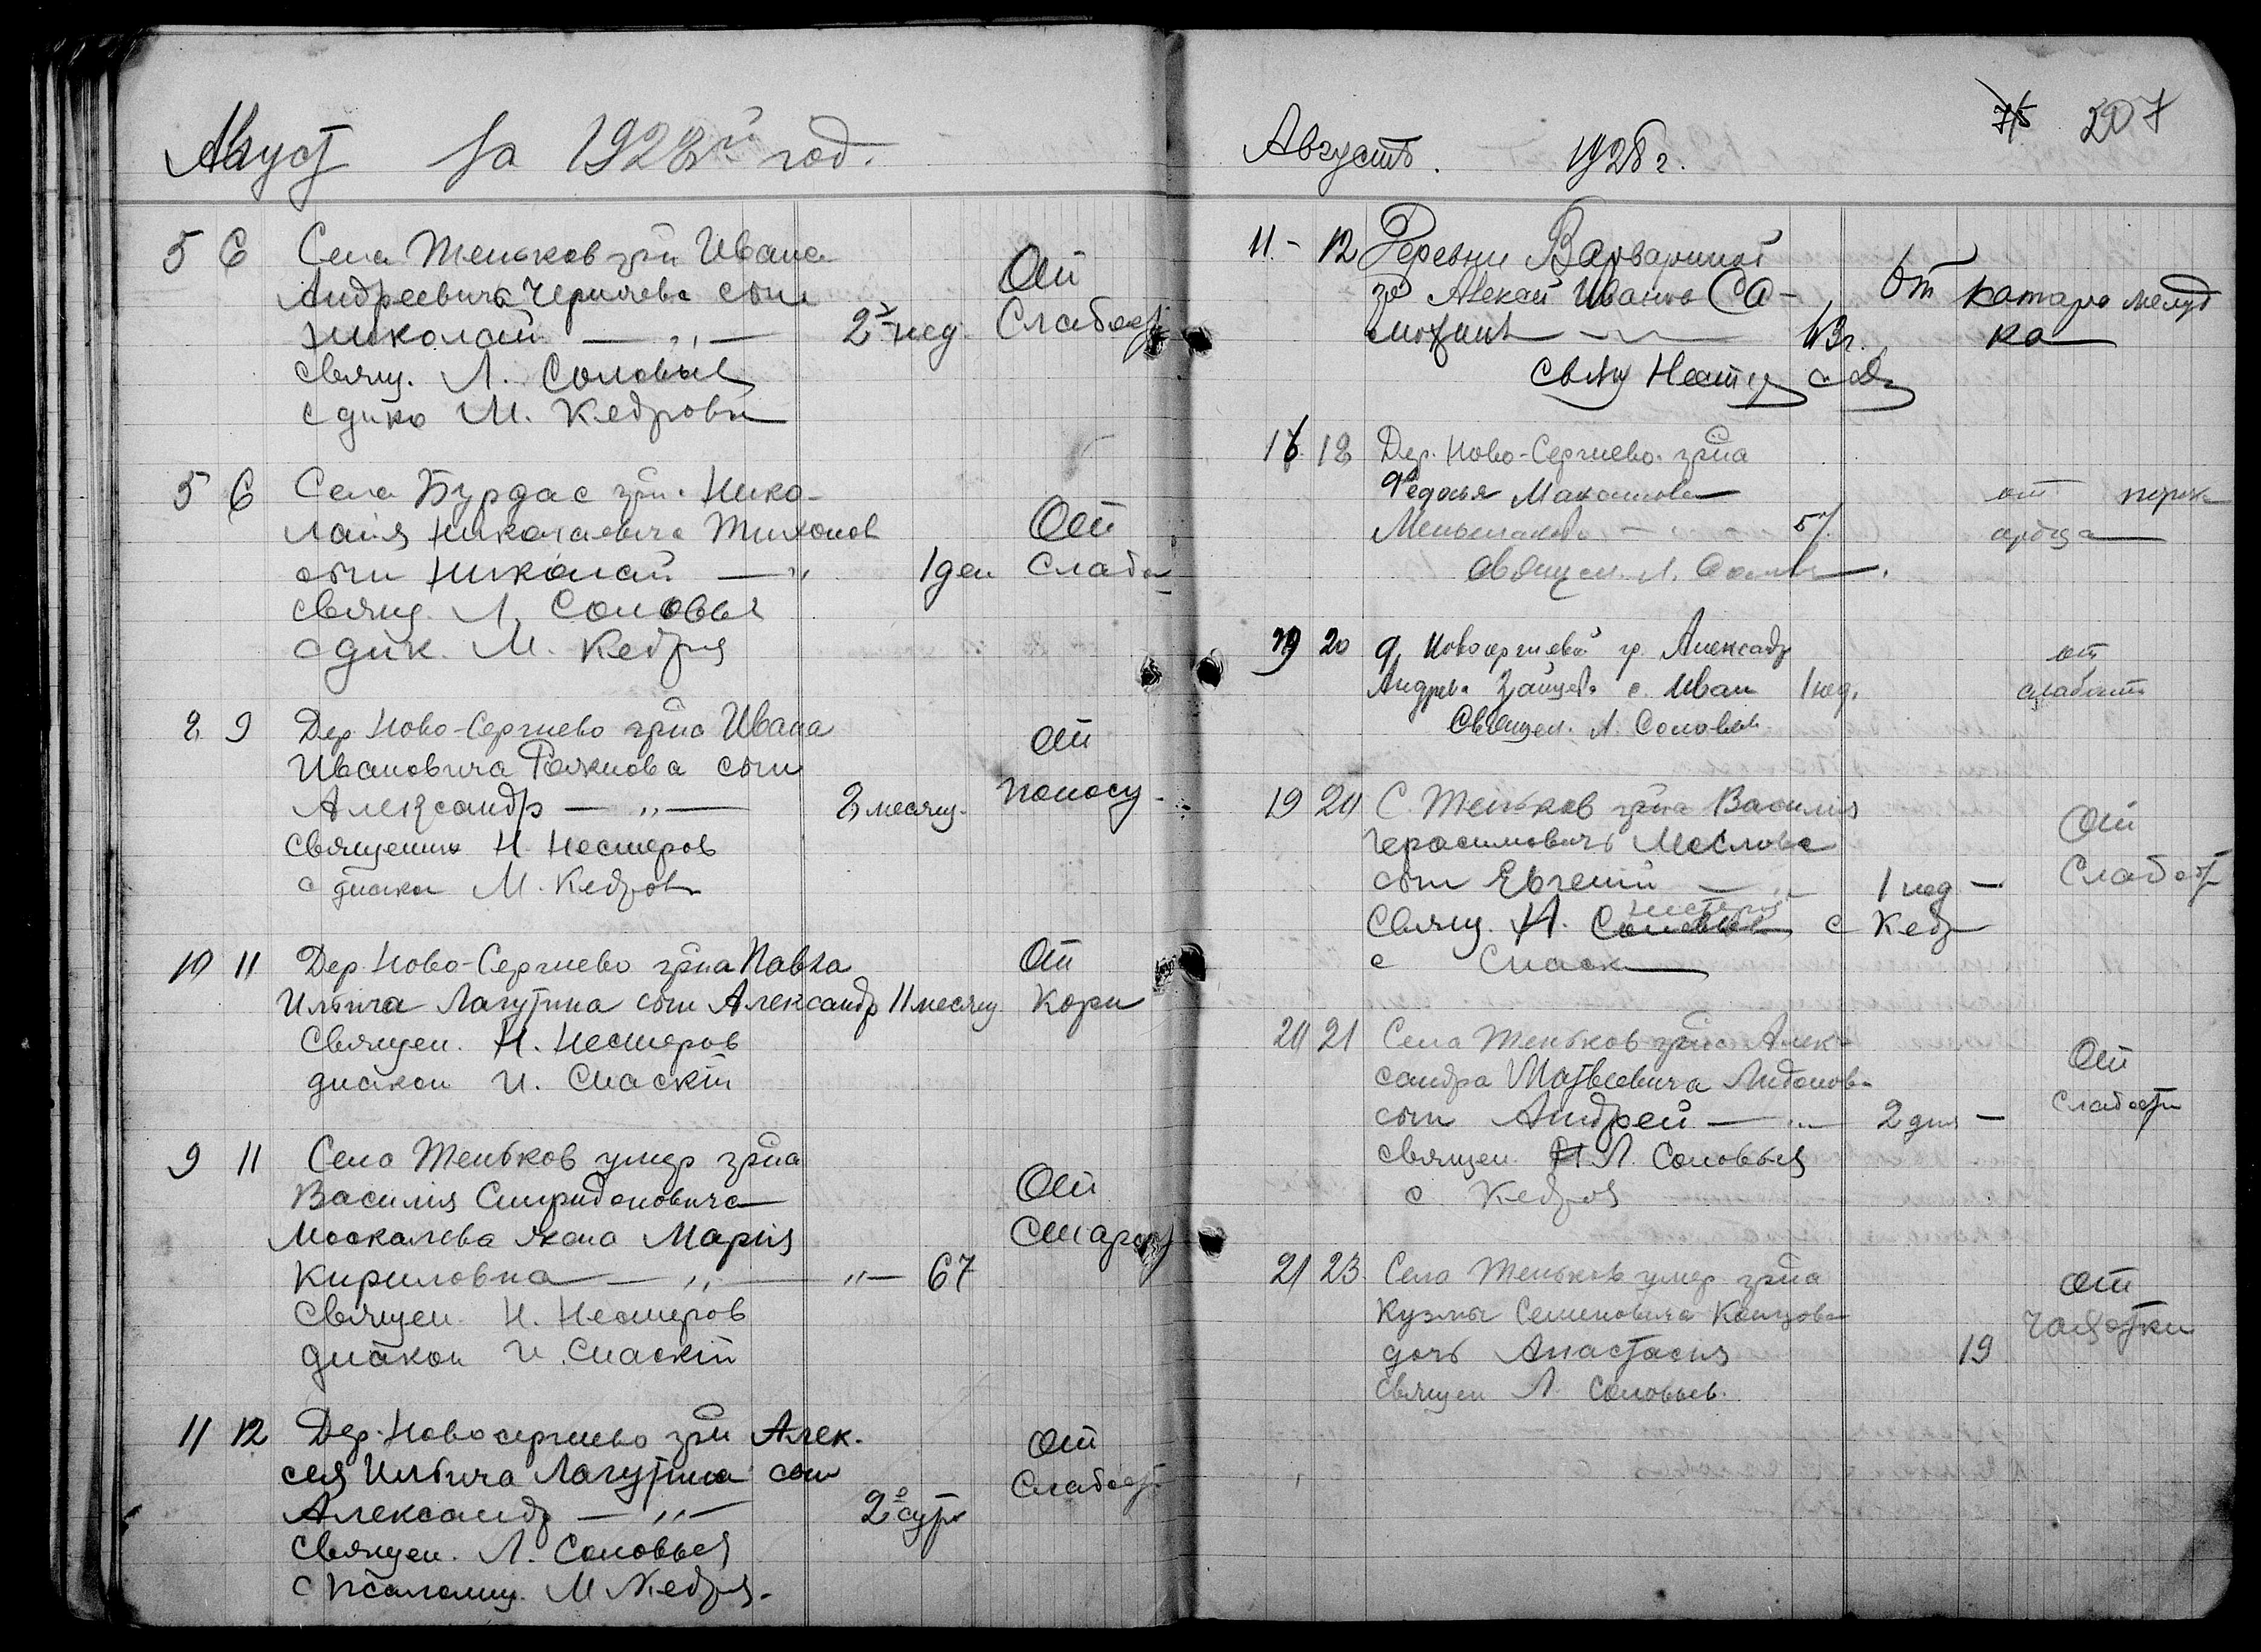 Август за 1928й год.
5 6 Села Теньков гр-н Ивана
Андреевича Черняева сын
Николай — „ — 2х нед. От Слабост
свящ. Л. Соловьев
с дико М. Кедровы
5 6 Села Бурдас гр-н. Нико-
лаія Николаевича Тихонов
сын Николай — „ 1 ден От Слаб
свящ. Л. Соловьев
с дик. М. Кедров
8 9 Дер Ново-Сергиево гр-на Ивана
Ивановича сын
Александр — „ — 2 месяц. От поносу
священник Н. Нестеров
с диако М. Кедров
10 11 Дер. Ново-Сергиево гр-на Павла
Ильича Лагутина сын Александр 11 месяц От Кори
Священ. Н. Нестеров
диакон И. Спаскій
9 11 Село Теньков умер гр-на
Василия Спиридоновича
Москалева жена Марія
Кириловна — „ — „ — 67 От Старост
Священ. Н. Нестеров
диакон И. Спаскій
11 12 Дер. Новосергиево гр-н Алек-
сея Ильича Лагутина сын
Александр — „ — 2е сут От Слабост
Священ. Л. Соловьев
с Псаломщ. М Кедров.
75 207
Августъ. 1928 г.
11 - 12 Деревни Варвариной
гр Алексай Иванов Са-
63 г. От катара желуд
ка
свящ Нест с Д
18 Дер. Ново-Сергиево. гр-на
Федосья Максимова
Меньшакова — 57. от порок
сердца
священ. Л. Солов
19 20 д. Новосергиевой гр. Александр
Андрев. Зайцева с. Иван 1 нед. от слабости
Священ. Л. Соловьев
19 20 С. Теньков гр-на Василия
Герасимовичь Маслова
сын Евгений — „ 1 нед — От Слабост
Нестеров
Свящ. Н. Соловьев с Кедр
с Спаск
20 21 Села Теньков гр-на Алек-
сандра Матвеевича
сын Андрей — „ — 2 дня — От Слабости
священ. Н Л. Соловьев
с Кедров
21 23 Село Теньков умер гр-на
Кузмы Семеновича
дочь Анастасия 19 От Чахотки
Священ Л. Соловьев.